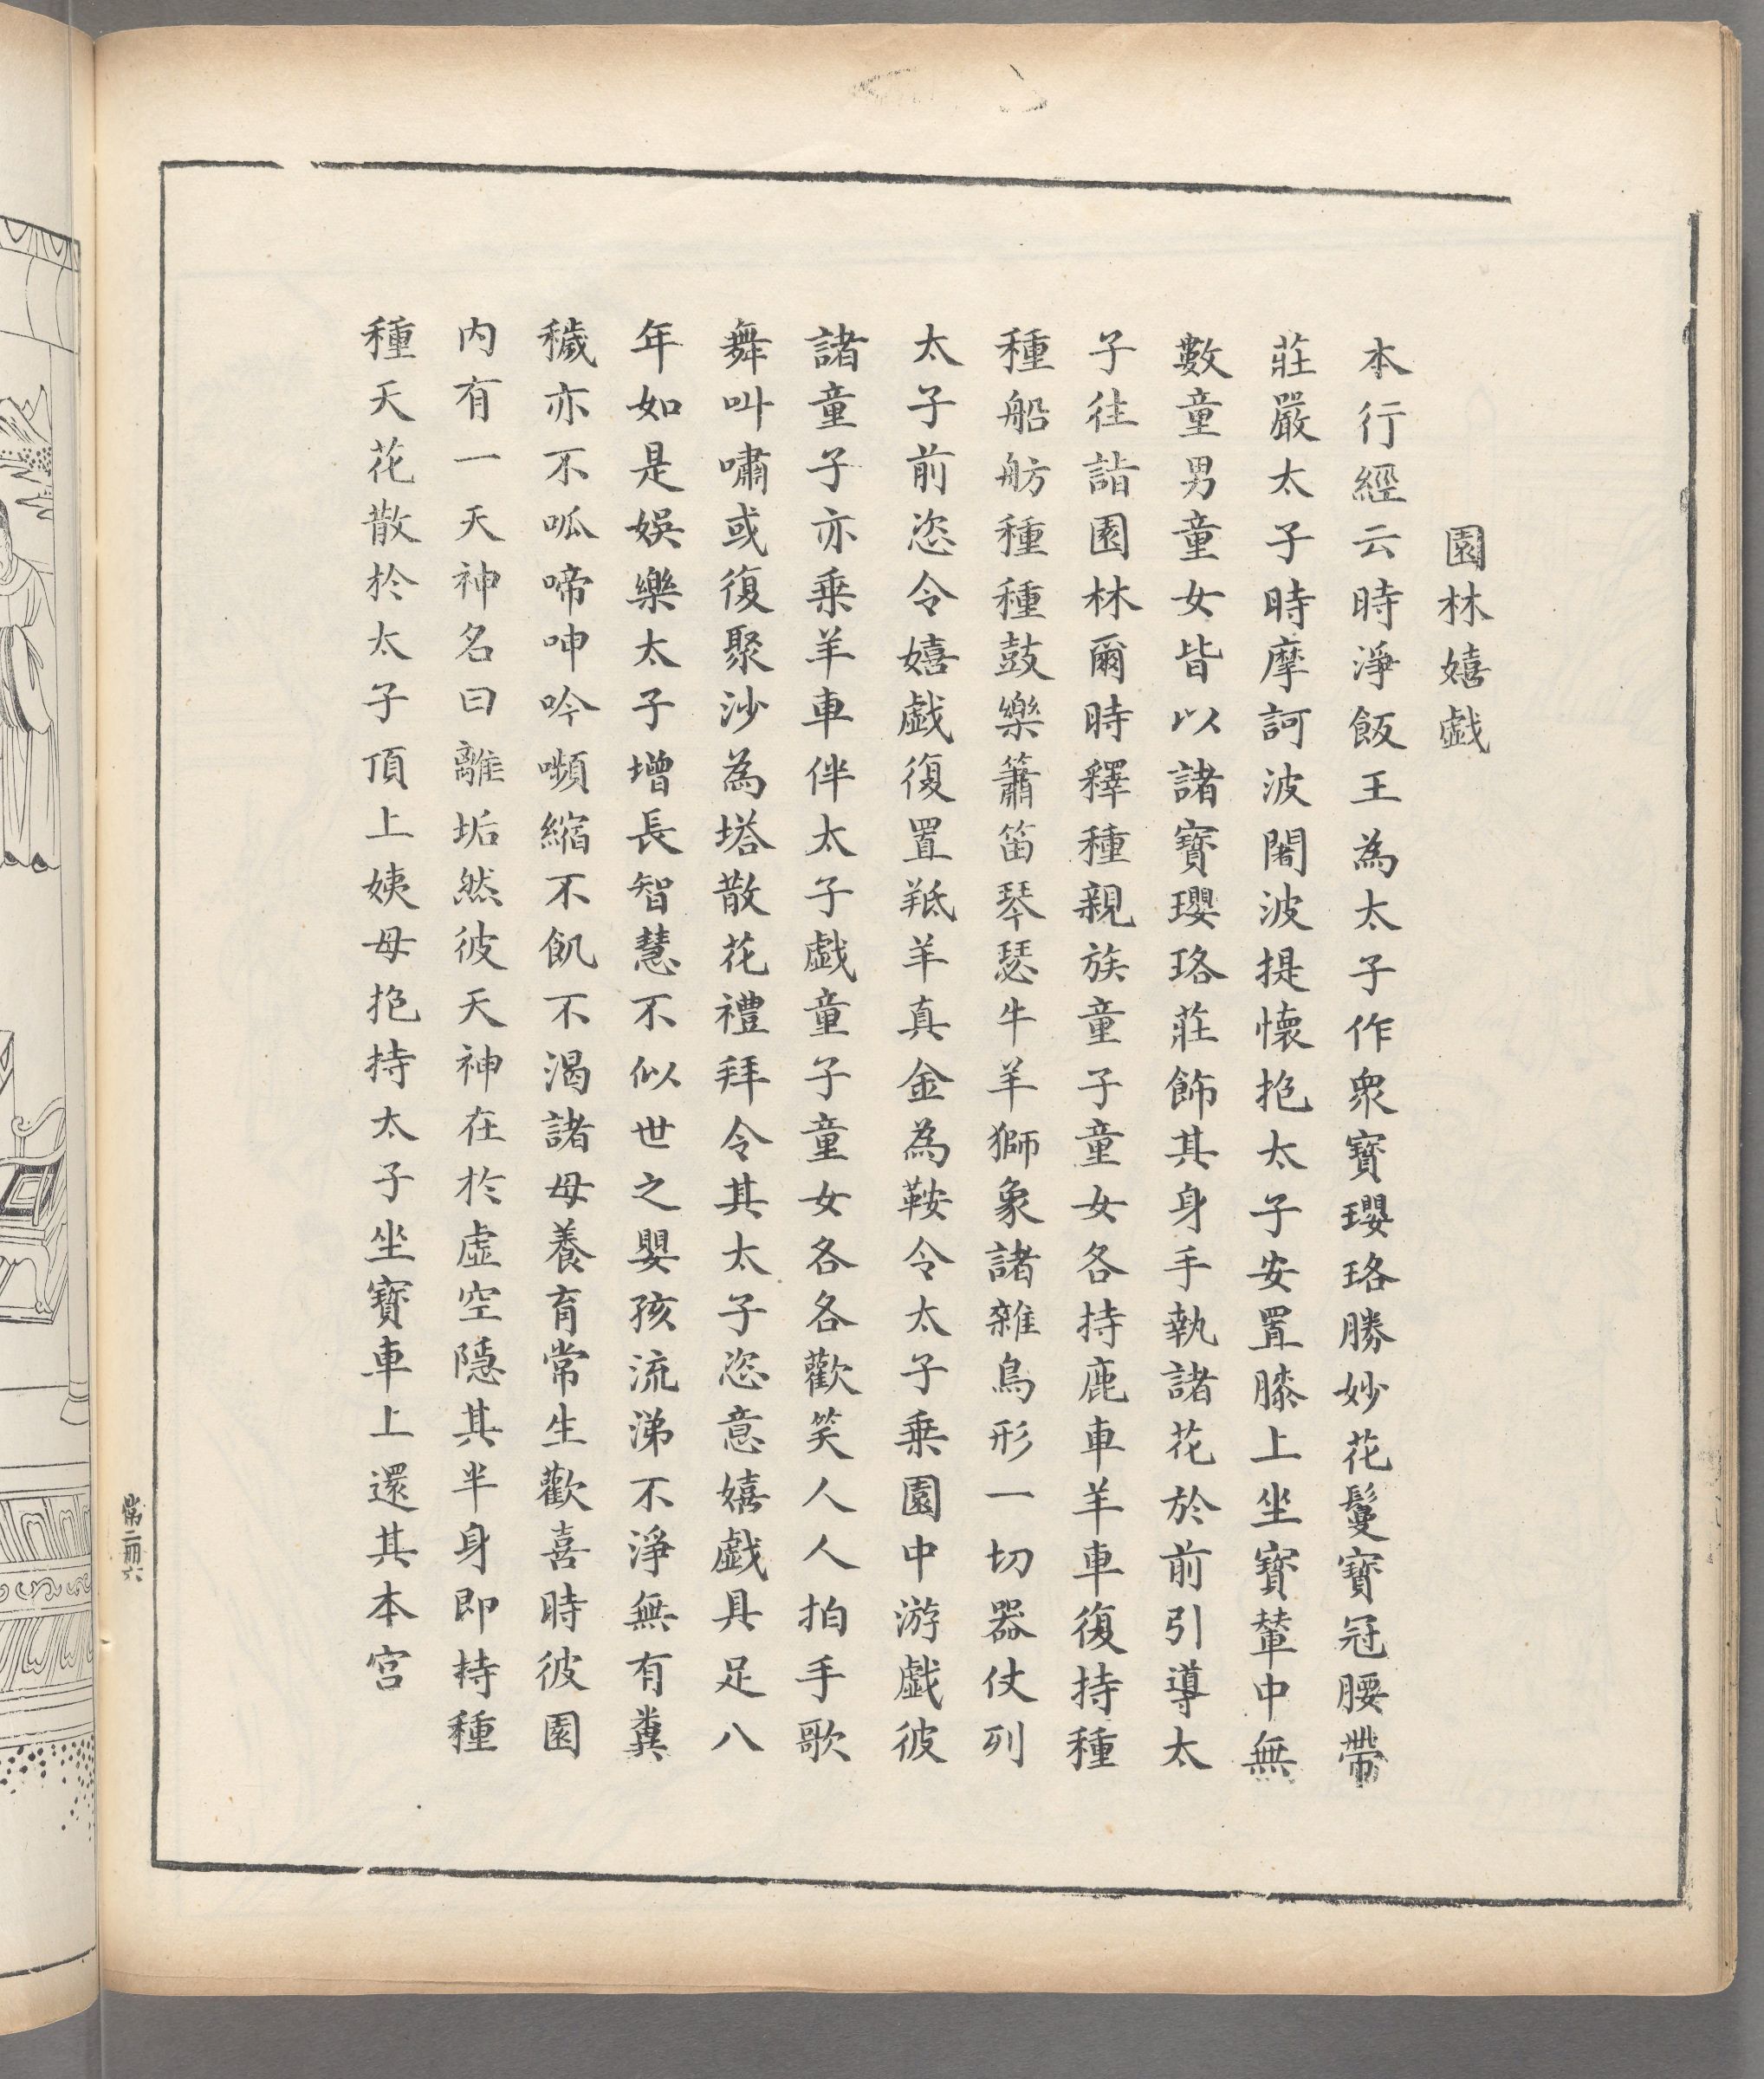 園林嬉戲
本行經云時淨飯王為太子作衆寳瓔珞勝妙花鬘寳冠腰帶
莊嚴太子時摩訶波闍波提懷抱太子安置膝上坐寳輦中無
數童男童女皆以諸寳瓔珞莊飾其身手執諸花於前引導太
子徃詣園林爾時釋種親族童子童女各持鹿車羊車復持種
種船舫種種鼓樂簫笛琴瑟牛羊獅象諸雜鳥形一切器仗列
太子前恣令嬉戲復置羝羊真金為鞍令太子乗園中游戲彼
諸童子亦乗羊車伴太子戲童子童女各各歡笑人人拍手歌
舞叫嘯或復聚沙為塔散花禮拜令其太子恣意嬉戲具足八
年如是娛樂太子增長智慧不似世之嬰孩流涕不淨無有糞
穢亦不呱啼呻吟嚬縮不飢不渴諸母養育常生歡喜時彼園
内有一天神名曰離垢然彼天神在於虛空隱其半身即持種
種天花散於太子頂上姨母抱持太子坐寳車上還其本宮